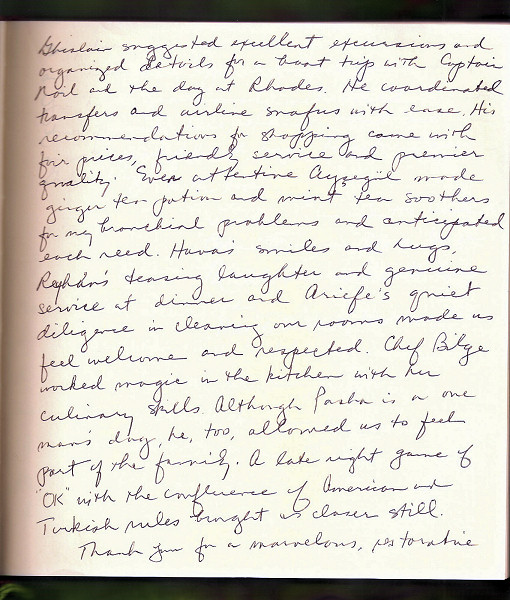 Ghislain suggested excellent excursions and
organized details for a boat trip with Captain
Noil and the day at Rhodes. He coordinated
transfers and airline snafus with ease. His
recommendations for shopping came with
fair prices, friendly service and premier
quality. Ever attentive Aysegül made
ginger tea potion and mint tea soothers
for my bronchial problems and anticipated
each need. Hava's smiles and hugs,
Reyhan's teasing laughter and genuine
service at dinner and Ariefe's quiet
diligence in cleaning our rooms made us
feel welcome and respected. Chef Bilge
worked magic in the kitchen with her
culinary skills. Although Pasha is a one
man's dog, he, too, allowed us to feel
part of the family. A late night game of
"OK" with the confluence of American and
Turkish rules brought us closer still.
Thank you for a marvelous, restorative